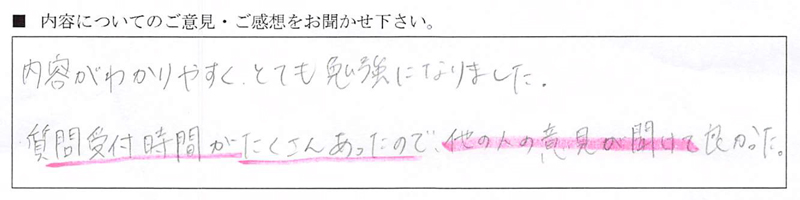 ■ 内容についてのご意見・ご感想をお聞かせ下さい。
内容がわかりやすく、とても勉強になりました.
質問受付時間がたくさんあったので、他の人の意見が聞けて良かった。